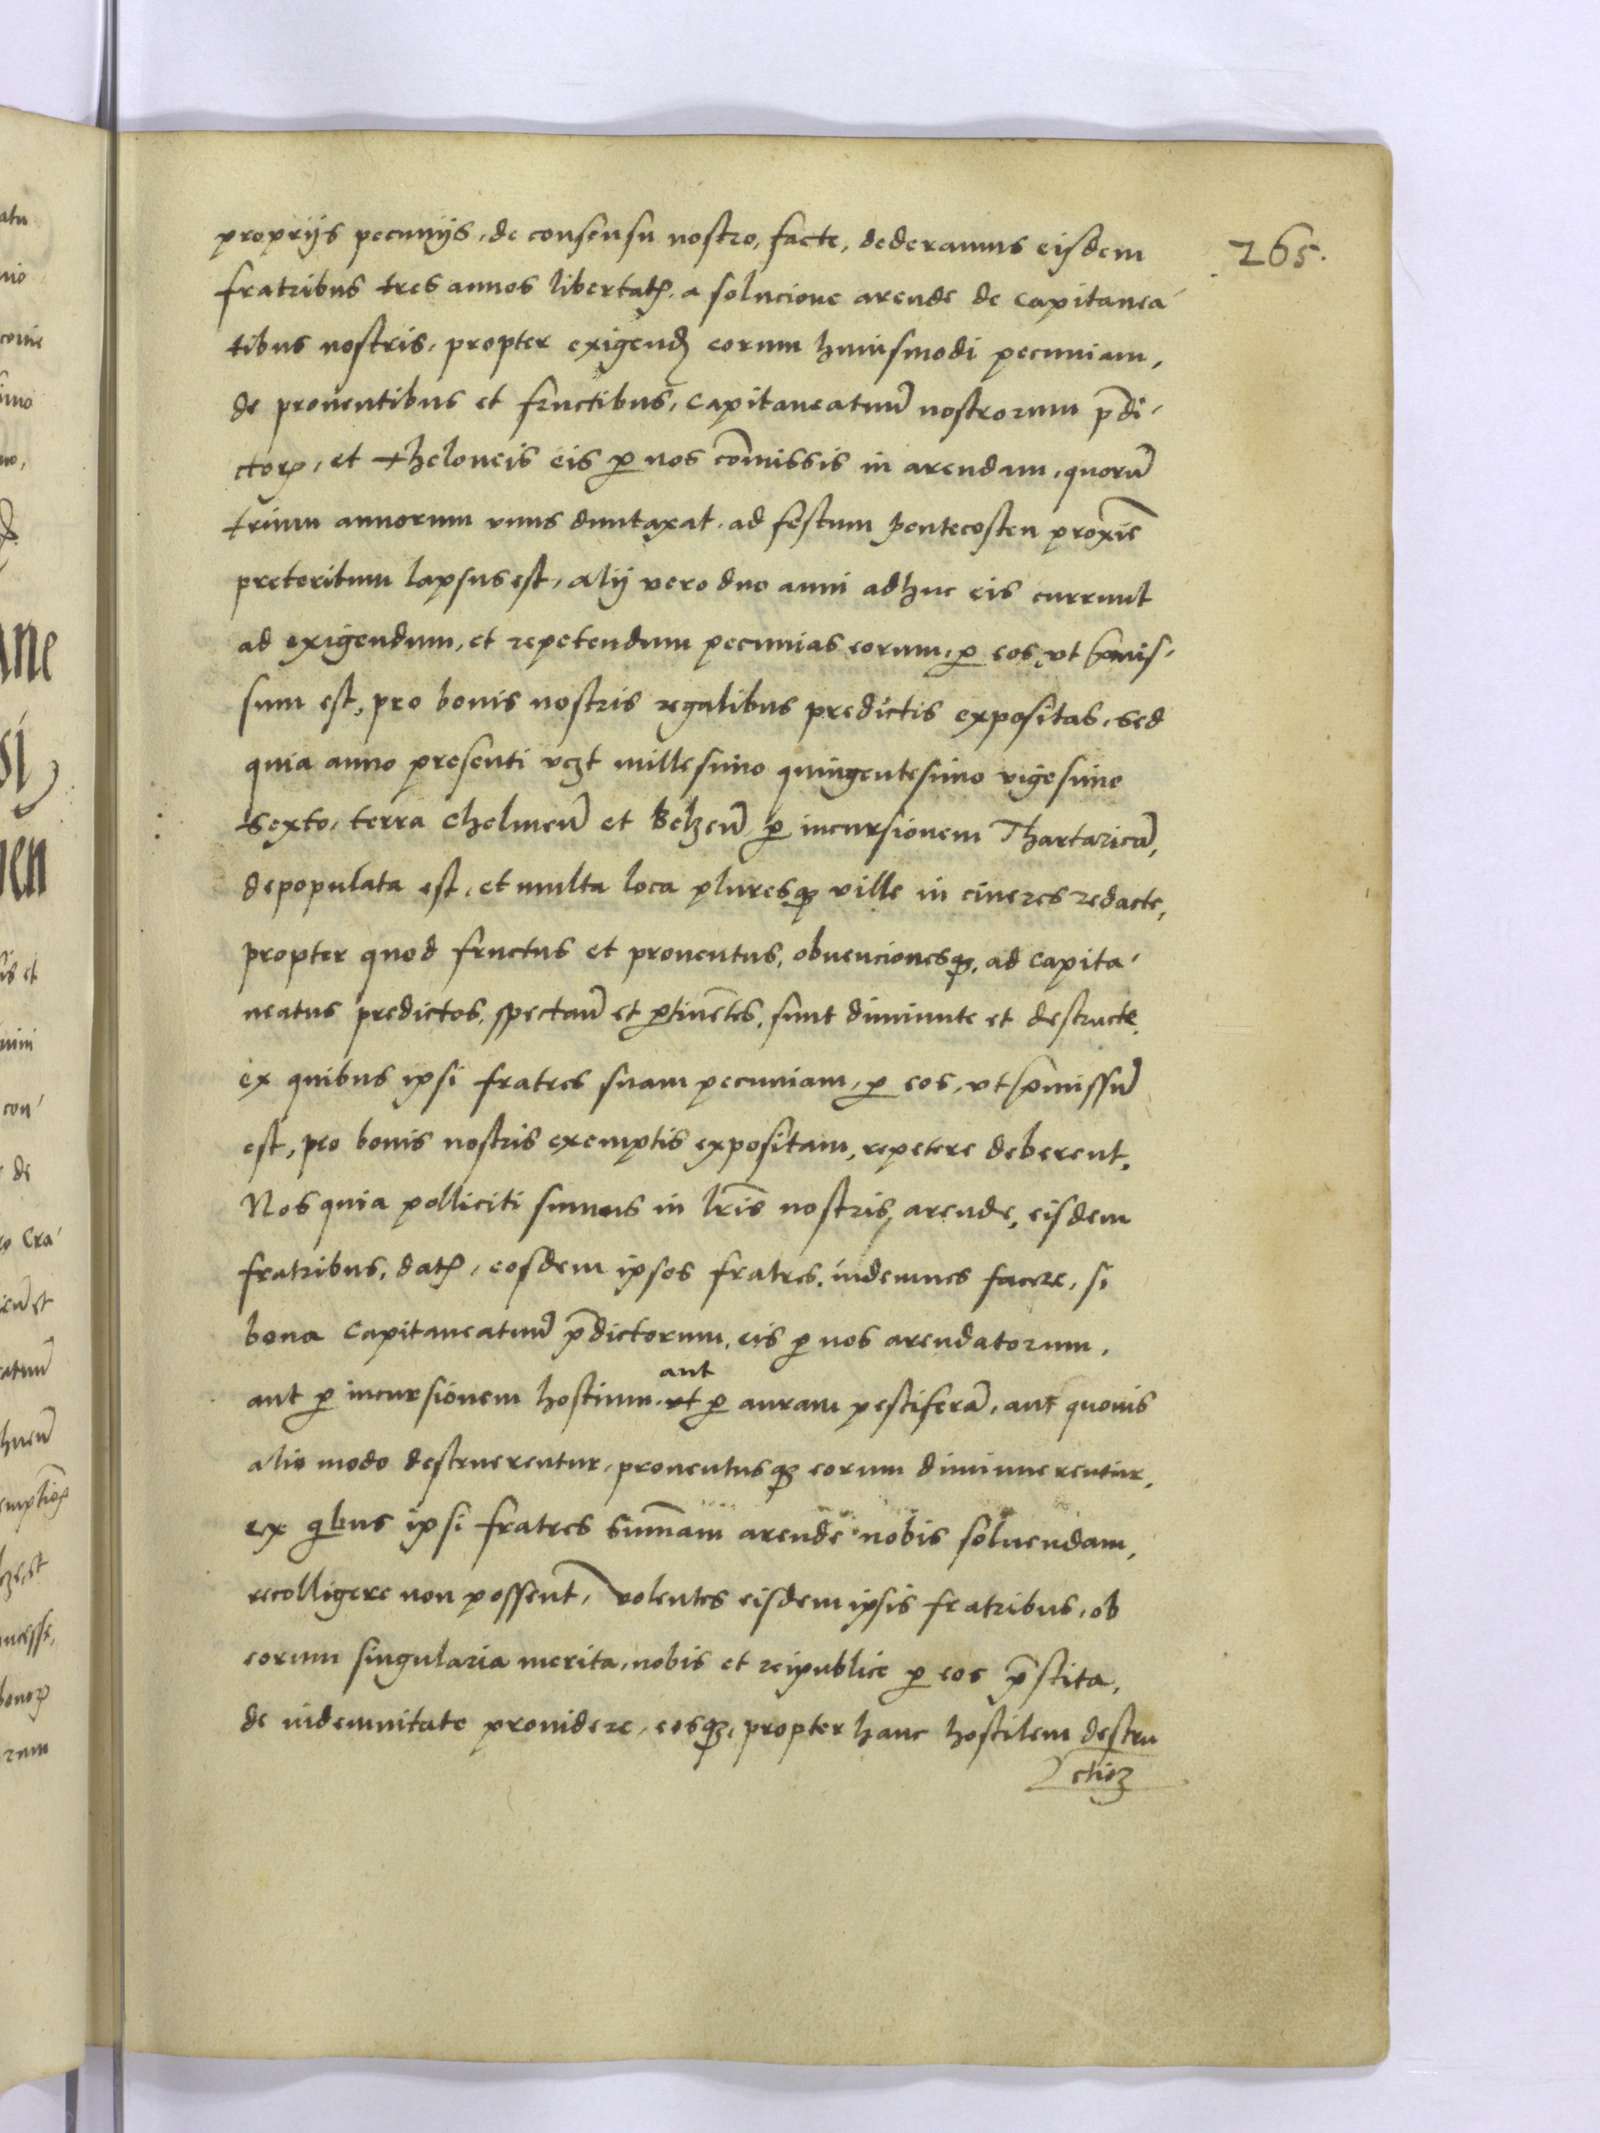 265.
proprijs pecunijs, de consensu nostro, facte, dederamus eisdem
fratribus tres annos libertatꝭ, a solucione arende de Capitanea-
tibus nostris, propter exigendꝭ eorum huiusmodi pecuniam,
de prouentibus et fructibus, Capitaneatuū nostrorum p̄di-
ctorꝝ, et theloneis eis ꝑ nos com̄issis in arendam, quorū
trium annorum vnus duntaxat, ad festum Pentecosten proxīe
preteritum lapsus est, alij vero duo anni adhuc eis currunt
ad exigendum, et repetendum pecunias eorum, ꝑ eos, vt p̄mis-
sum est, pro bonis nostris regalibus predictis expositas, Sed
quia anno presenti vczt millesimo quingentesimo vigesimo
Sexto, terra Chelmeñ et Belzeñ ꝑ incursionem Thartaricā,
depopulata est, et multa loca pluresqꝫ ville in cineres redacte,
propter quod fructus et prouentus, obuencionesqꝫ, ad Capita-
neatus predictos, spectañ et ꝑtineñtes, sunt diminute et destructe,
ex quibus ipsi fratres suam pecuniam, ꝑ eos, vt p̄missū
est, pro bonis nostris exemptis expositam, repetere deberent,
Nos quia polliciti sumus in lr̄is nostris, arende, eisdem
fratribus, datꝭ, eosdem ipsos fratres, indemnes facere, si
bona Capitaneatuū p̄dictorum, eis ꝑ nos arendatorum,
aut ꝑ incursionem hostium, vt ꝑ auram pestiferā, aut quouis
aut
alio modo destruerentur, prouentusqꝫ eorum diminuerentur,
ex qbus ipsi fratres sum̄am arende nobis soluendam,
recolligere non possent, volentes eisdem ipsis fratribus, ob
eorum singularia merita, nobis et reipublice ꝑ eos p̄stita,
de indemnitate prouidere, eosqꝫ, propter hanc hostilem destru
ctioꝫ